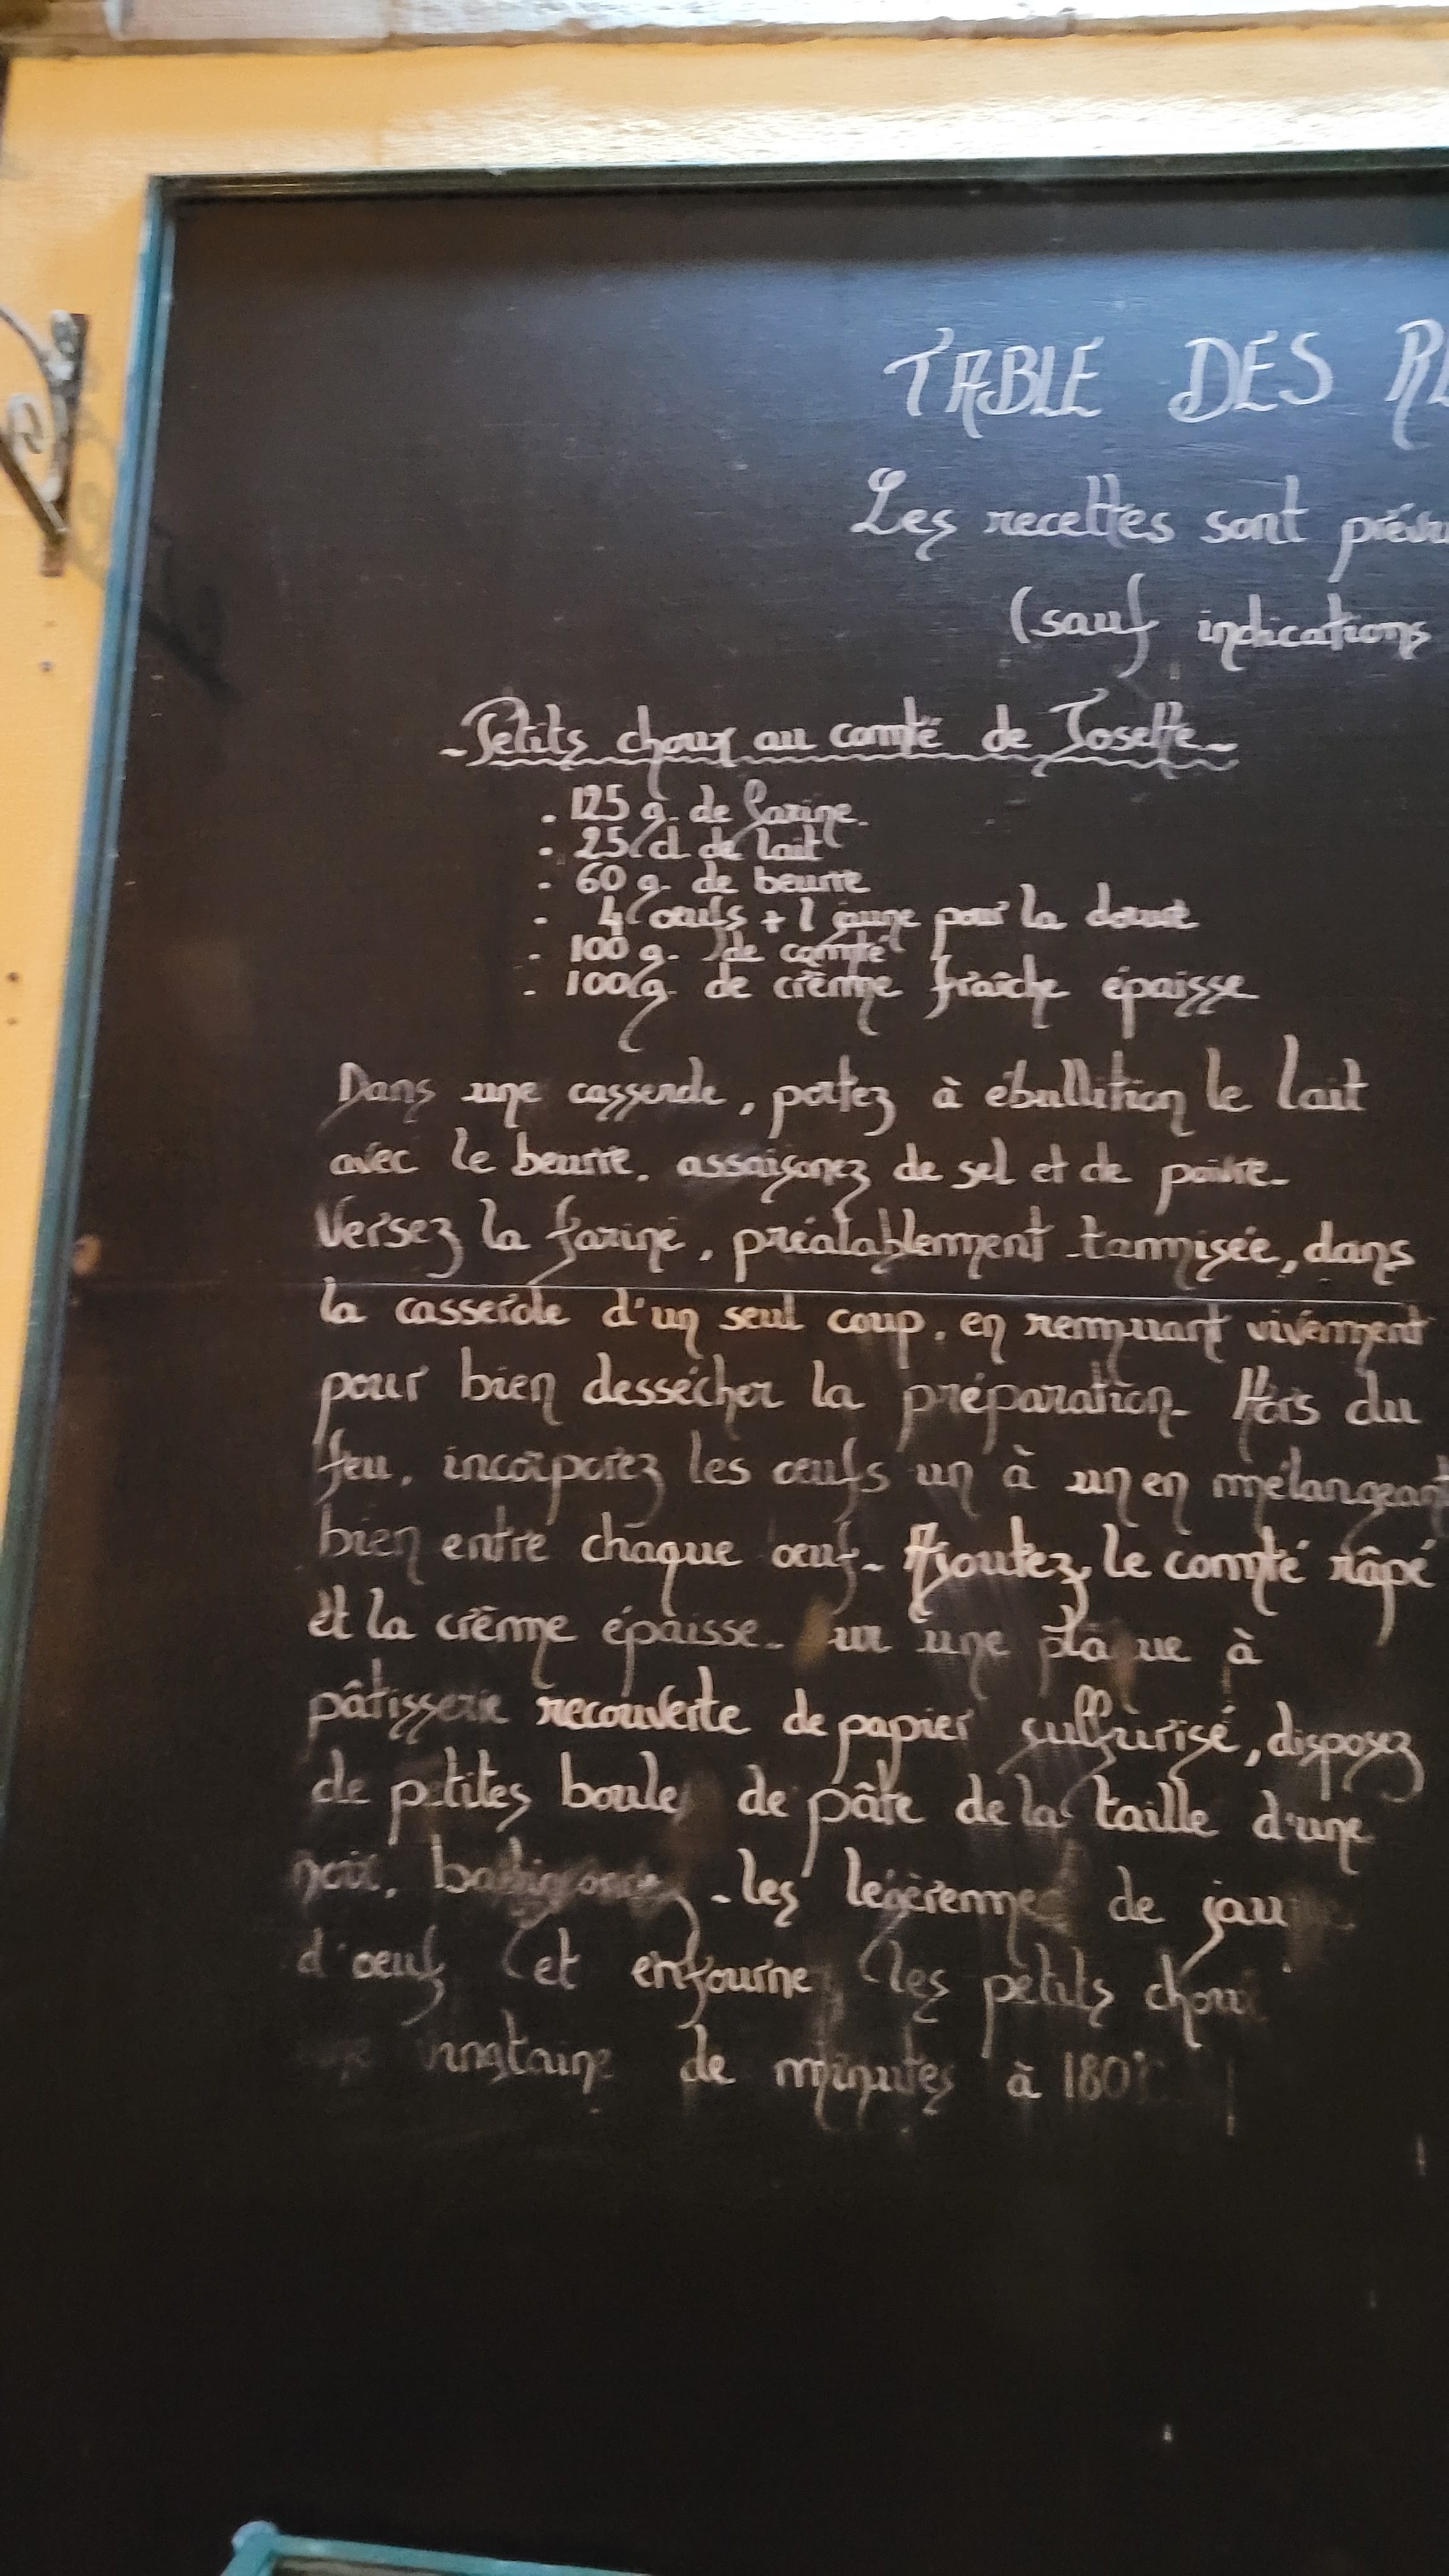 TABLE DES RE
Les recettes sont prévu
(sauf indications
- Petits choux au comté de Josette -
- 125 g. de farine.
- 25 cl de lait
- 60 g. de beurre
- 4 œufs + 1 jaune pour la dorure
- 100 g. de comté
- 100 g. de crème fraîche épaisse
Dans une casserole, portez à ébullition le lait
avec le beurre. assaisonez de sel et de poivre.
Versez la farine, préalablement tammisée, dans
la casserole d'un seul coup, en remuant vivement
pour bien dessécher la préparation. Hors du
feu, incorporez les œufs un à un en mélangeant
bien entre chaque œuf. Ajoutez le comté râpé
et la crème épaisse. ur une pla ue à
pâtisserie recouverte de papier sulfurisé, disposez
de petites boule de pâte de la taille d'une
noix. badigeonnez -les légèreme de jau
d'œuf et enfourne les petits choux
vingtaine de minutes à 180°C